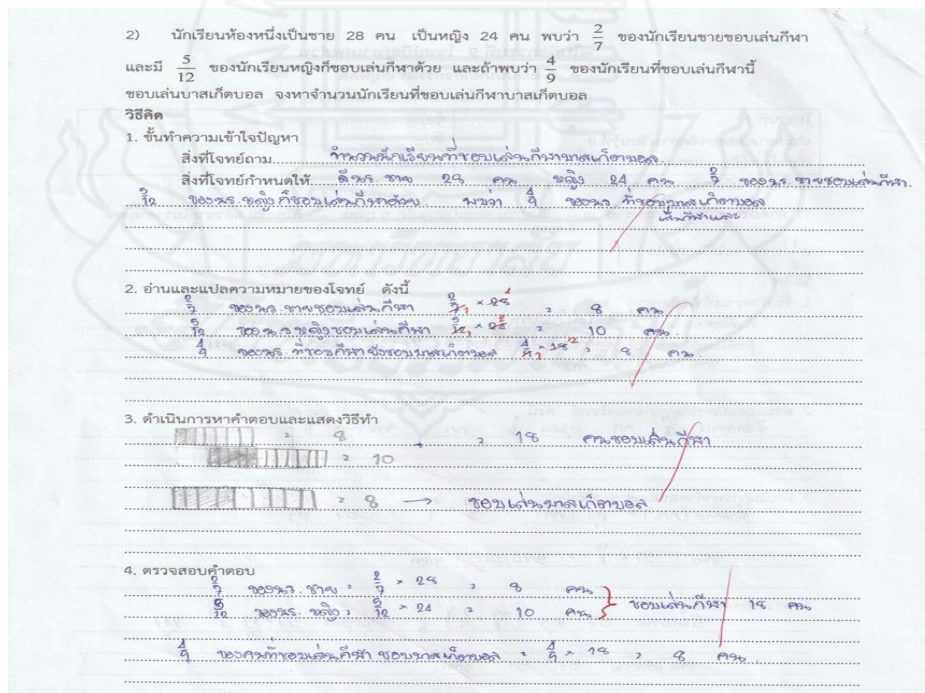 2) นักเรียนห้องหนึ่งเป็นชาย 28 คน เป็นหญิง 24 คน พบว่า 2/7 ของนักเรียนชายชอบเล่นกีฬา
และมี 5/12 ของนักเรียนหญิงก็ชอบเล่นกีฬาด้วย และถ้าพบว่า 4/9 ของนักเรียนที่ชอบเล่นกีฬานี้
ชอบเล่นบาสเก็ตบอล จงหาจำนวนนักเรียนที่ชอบเล่นกีฬาบาสเก็ตบอล
วิธีคิด
1. ขั้นทำความเข้าใจปัญหา
สิ่งที่โจทย์ถาม จำนวนนักเรียนที่ชอบเล่นกีฬาบาสเก็ตบอล
สิ่งที่โจทย์กำหนดให้ มีนร. ชาย 28 คน หญิง 24 คน 2/7 ของนร. ชายชอบเล่นกีฬา
5/12 ของนร. หญิงก็ชอบเล่นกีฬาด้วย พบว่า 4/9 ของนร. ที่ชอบบาสเก็ตบอล
เล่นกีฬาและ
2. อ่านและแปลความหมายของโจทย์ ดังนี้
2/7 ของนร. ชายชอบเล่นกีฬา 2/7 × 28 = 8 คน
5/12 ของนร. หญิงชอบเล่นกีฬา 5/12 × 24 = 10 คน
4/9 ของนร. ที่ชอบกีฬายังชอบบาสเก็ตบอล 4/9 × 18 = 8 คน
3. ดำเนินการหาคำตอบและแสดงวิธีทำ
= 8 + = 18 คนชอบเล่นกีฬา
= 10
= 8 → ชอบเล่นบาสเก็ตบอล
4. ตรวจสอบคำตอบ
2/7 ของนร. ชาย = 2/7 × 28 = 8 คน
5/12 ของนร. หญิง = 5/12 × 24 = 10 คน } ชอบเล่นกีฬา 18 คน
4/9 ของคนที่ชอบเล่นกีฬา ชอบบาสเก็ตบอล = 4/9 × 18 = 8 คน